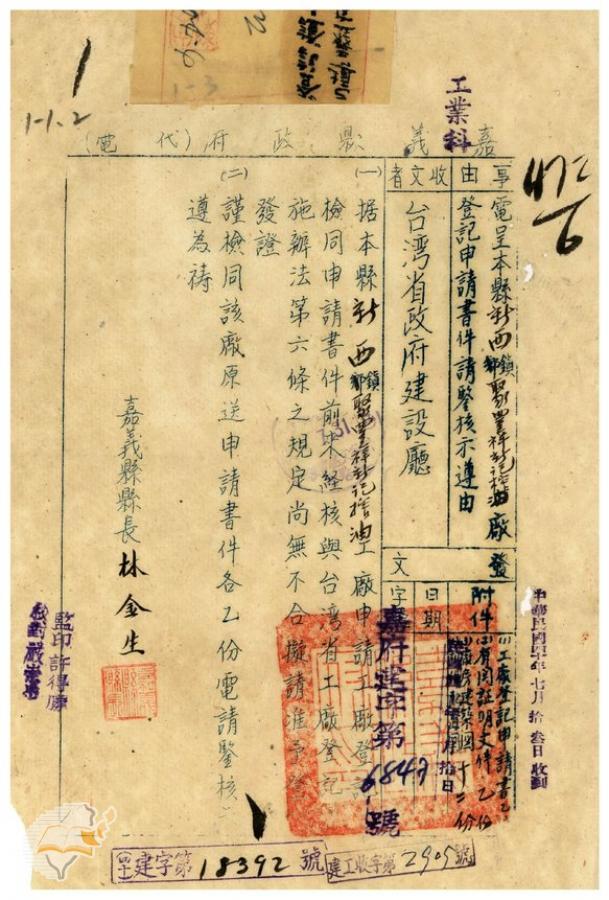 工業科
嘉義縣政府(代電)
事由
電呈本縣新西鄉鎮聚豐祥新記搾油廠
登記申請書件請鑒核示遵由
收文者
台湾省政府建設廳
發文
附件
(1)工廠登記申請書乙
(2)有関証明文件乙份
日期
字
嘉府建字第6847號
(一)據本縣新西鄉鎮聚豐祥新記搾油工廠申請工廠登
檢同申請書件前來経核與台湾省工廠登記
施辦法第六條之規定尚無不合擬請准予
發證
(二)謹檢同該廠原送申請書件各乙份電請鑒核
遵為禱
嘉義縣縣長林金生
監印許得應
中華民國四十年七月拾叁日收到
四十建字第18392號
建工收字第2909號
1-1.2
1-3